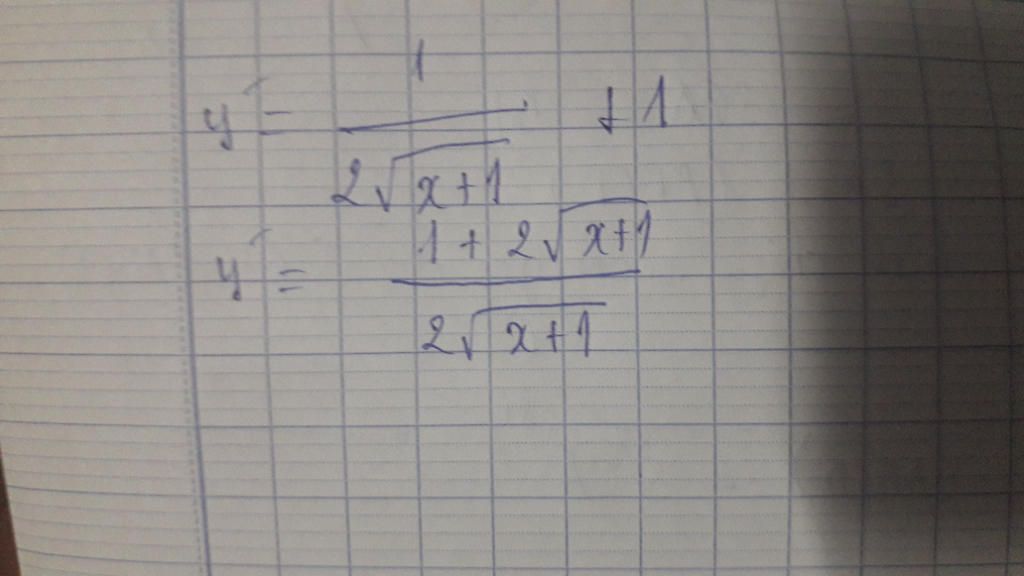 y' = 1 / (2√(x+1)) + 1
y' = (1 + 2√(x+1)) / (2√(x+1))